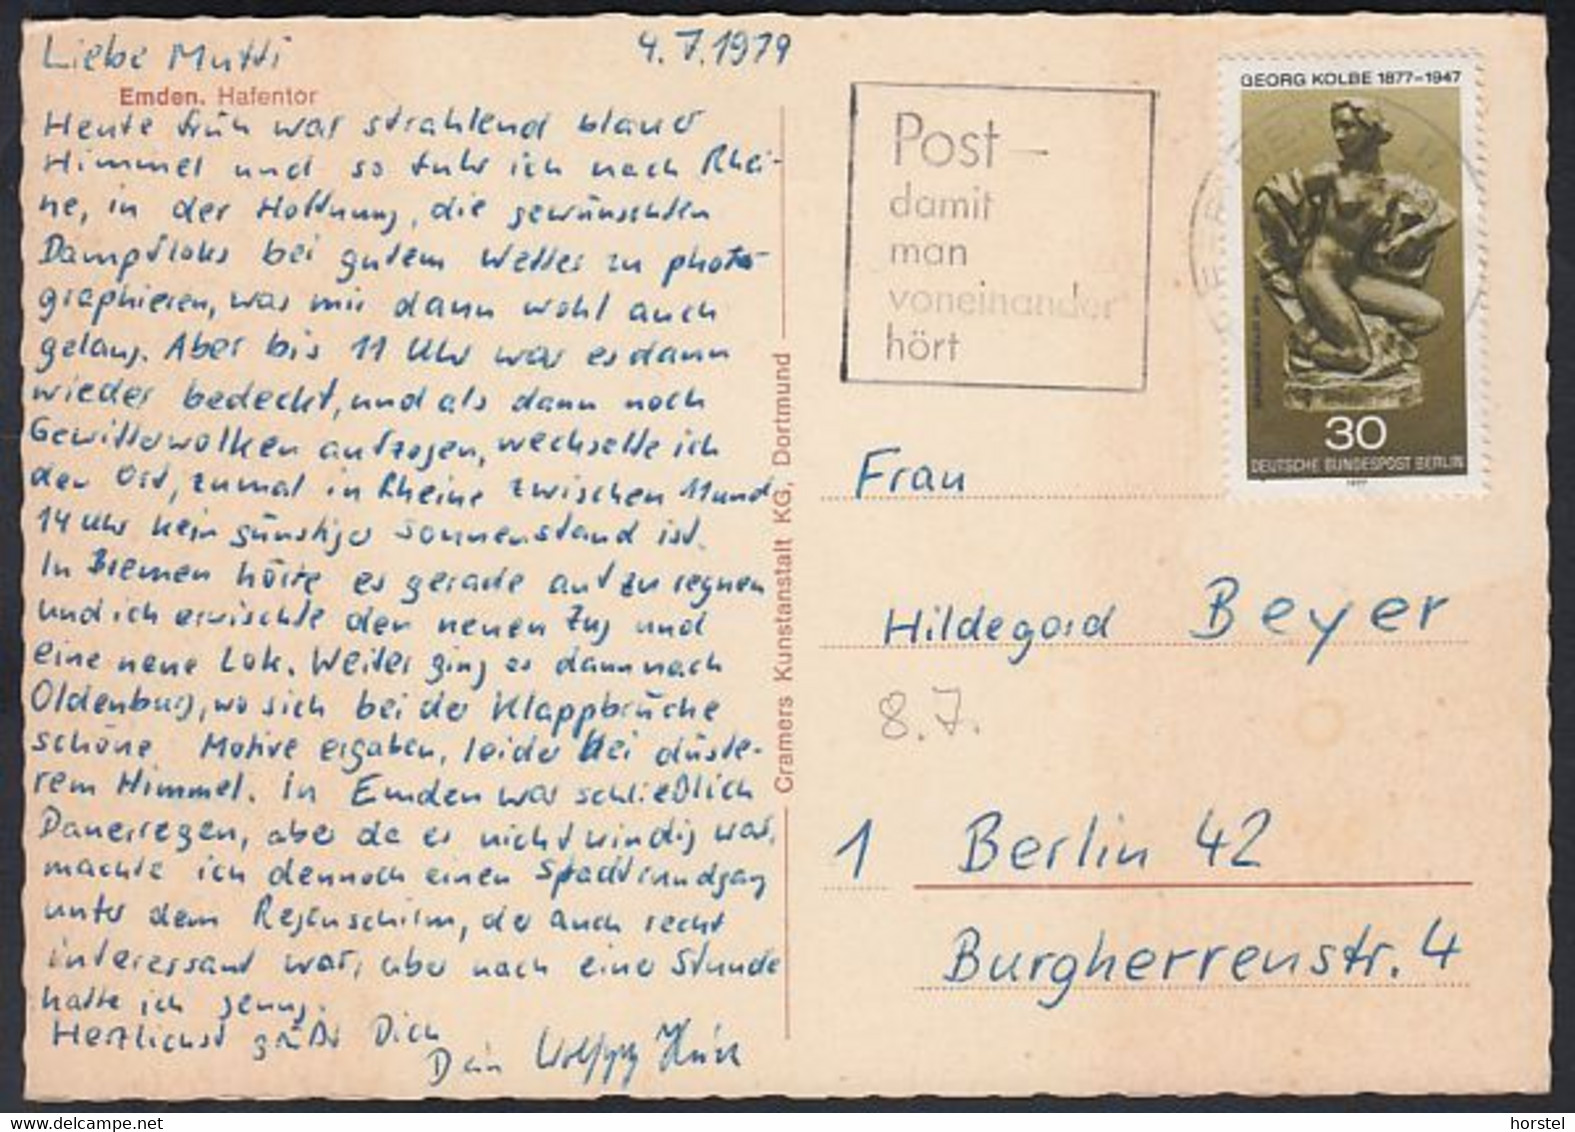 Liebe Mutti 4.7.1979
Emden. Hafentor
Heute früh war strahlend blauer
Himmel und so fuhr ich nach Rhei-
ne, in der Hoffnung, die gewünschten
Dampfloks bei gutem Wetter zu photo-
graphieren, was mir dann wohl auch
gelang. Aber bis 11 Uhr war es dann
wieder bedeckt, und als dann noch
Gewitterwolken aufzogen, wechselte ich
den Ort, zumal in Rheine zwischen 11 und
14 Uhr kein günstiger Sonnenstand ist.
In Bremen hörte es gerade auf zu regnen
und ich erwischte den neuen Zug und
eine neue Lok. Weiter ging es dann nach
Oldenburg, wo sich bei der Klappbrücke
schöne Motive ergaben, leider bei düste-
rem Himmel. In Emden war schließlich
Dauerregen, aber da es nicht windig war,
machte ich dennoch einen Stadtrundgang
unter dem Regenschirm, der auch recht
interessant war, aber nach einer Stunde
hatte ich genug.
Herzlichst grüßt Dich
Dein Wolfgang
Cramers Kunstanstalt KG, Dortmund
Post –
damit
man
voneinander
hört
GEORG KOLBE 1877–1947
30
DEUTSCHE BUNDESPOST BERLIN
1977
Frau
Hildegard Beyer
8.7.
1 Berlin 42
Burgherrenstr. 4
horstel | Delcampe.net